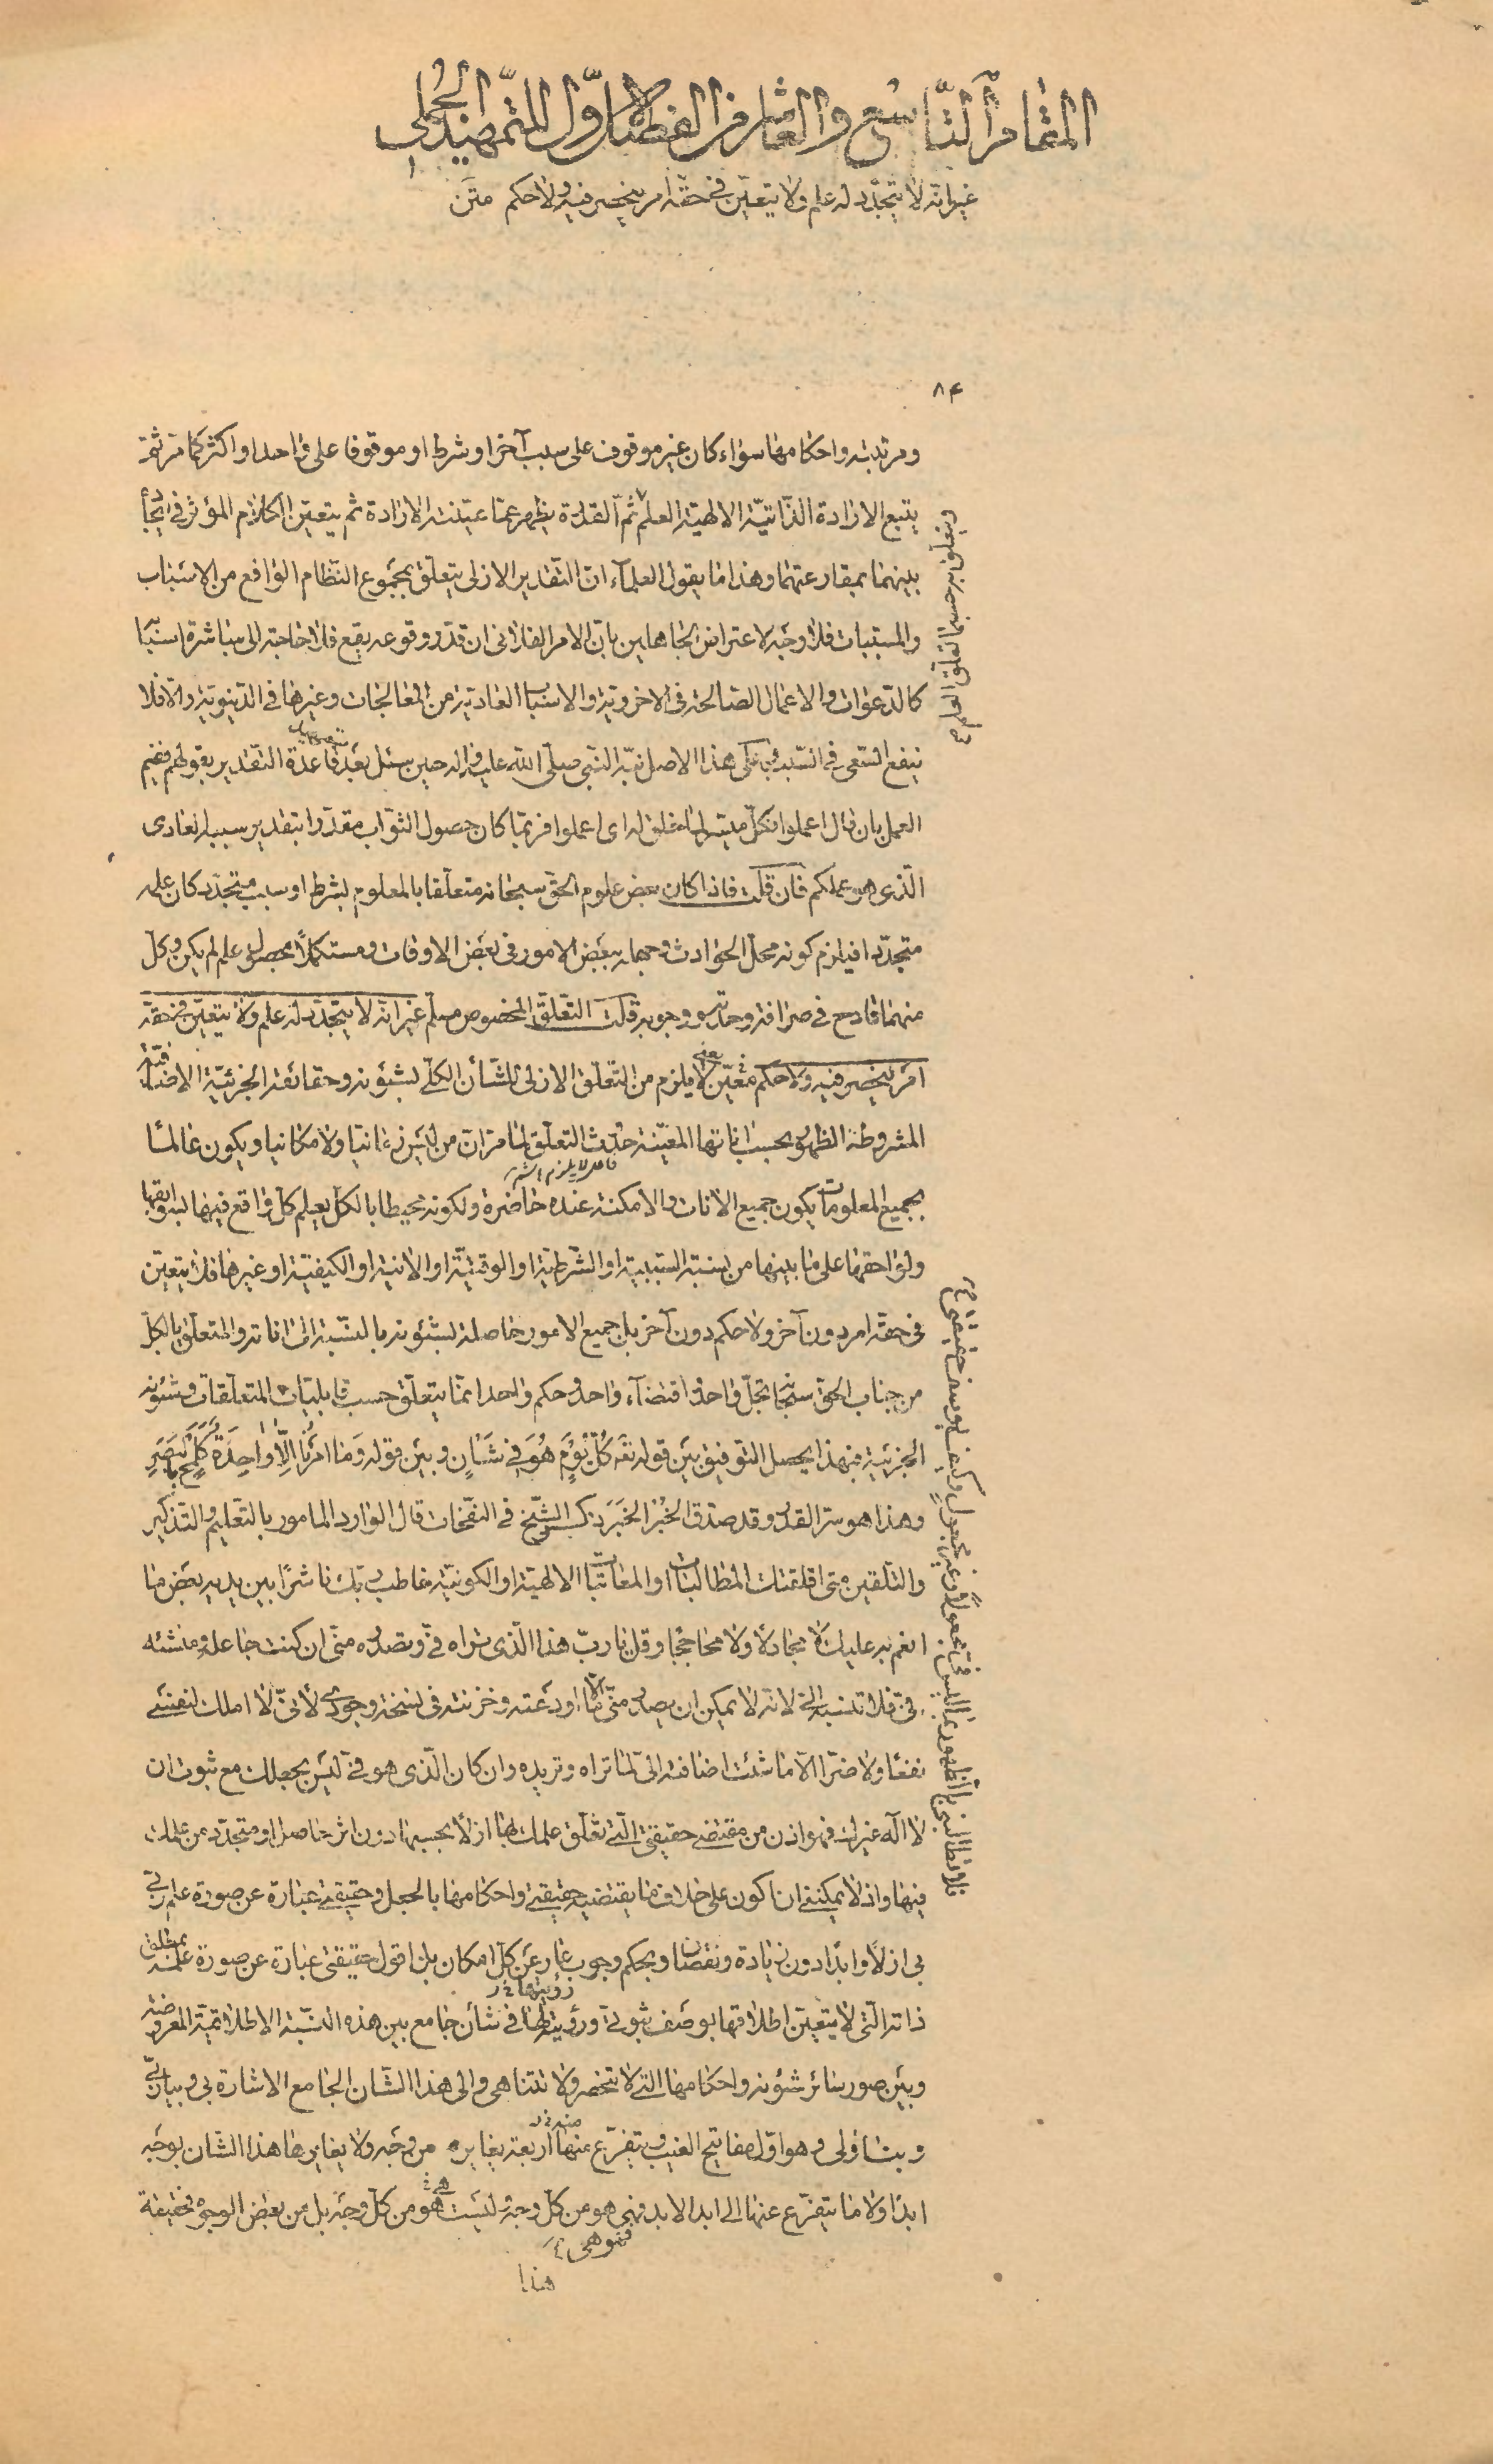 المقام التاسع والعاشر من الفصل الاول للتمهيد الجملي
غير انه لا يتجدد له علم ولا يتعين في حقه امر ينحصر فيه ولا حكم متن
٨٤
ومرتبته واحكامها سواء كان غير موقوف على سبب آخر او شرط او موقوفا على واحد او اكثر كما مر ثم
يتبع الارادة الذاتية الالهية العلم ثم القدرة يظهر عما عينته الارادة ثم يتعين الكلام المؤثر في ايجاد
بينهما بمقارعتهما وهذا ما يقول العلماء ان التقدير الازلى يتعلق بمجموع النظام الواقع من الاسباب
والمسببات فلا وجه لاعتراض الجاهلين بان الامر الفلانى ان قدر وقوعه يقع فلا حاجة الى مباشرة اسبابها
كالدعوات والاعمال الصالحة فى الاخروية والاسباب العادية من المعالجات وغيرها فى الدنيوية والا فلا
ينفع السعى فى السبب وعلى هذا الاصل نبه النبى صلى الله عليه وآله حين سئل بعد قاعدة التقدير بقولهم ففيم
العمل بان قال اعملوا فكل ميسر لما خلق له اى اعملوا فربما كان حصول الثواب مقدرا بتقدير سببه العادى
الذى هو عملكم فان قلت فاذا كان بعض علوم الحق سبحانه متعلقا بالمعلوم بشرط او سبب متجدد كان علمه
متجددا فيلزم كونه محل الحوادث وجهله ببعض الامور فى بعض الاوقات ومستكملا بحصول علم لم يكن وكل
منهما قادح فى صرافة وحدته ووجوبه قلت التعلق المخصوص مسلم غير انه لا يتجدد له علم ولا يتعين في حقه
امر ينحصر فيه ولا حكم متعين يعنى لا يلزم من التعلق الازلى للشأن الكلى بشئونه وحقائقه الجزئية الاضافية
المشروطة الظهور بحسب اناتها المعينة حدث التعلق لما مر ان من ليس زمانيا ولا مكانيا ويكون عالما
بجميع المعلومات يكون جميع الانات والامكنة عنده حاضرة ولكونه محيطا بالكل يعلم كل واقع فيها بسوابقها
ولواحقها على ما بينها من نسبة السببية او الشرطية او الوقتية او الانية او الكيفية او غيرها فلا يتعين
فى حقه امر دون آخر ولا حكم دون آخر بل جميع الامور حاصلة لشئونه بالنسبة الى اناته والمتعلق بالكل
من جناب الحق سبحانه تجل واحد واقتضاء واحد وحكم واحد انما يتعلق حسب قابليات المتعلقات وشئونه
الجزئية فبهذا يحصل التوفيق بين قوله تعه كل يوم هو في شأن وبين قوله وما امرنا الا واحدة كلمح بالبصر
وهذا هو سر القدر وقد صدق الخبر الخبر ذكر الشيخ فى النفحات قال الوارد المامور بالتعليم والتذكير
والتلقين متى اقلقتك المطالبات او المعاتبات الالهية او الكونية خاطب ربك ناشرا بين يديه بعض ما
انعم به عليك لا مجادلا ولا محاججا وقل يا رب هذا الذى تراه فى وتصدره منى ان كنت جاعله ومنشئه
فى فلا تنسبه الى لانه لا يمكن ان يصدر منى الا ما اودعته وخزنته فى نسخة وجودى لأنى لا املك لنفسى
نفعا ولا ضرا الا ما شئت اضافته الى لما تراه وتريده وان كان الذى هو فى ليس بجعلك مع ثبوت ان
لا اله غيرك فهو اذن من مقتضى حقيقتى التى تعلق علمك بها ازلا بحسبها دون اثر حاصل او متجدد من علمك
فيها واذ لا يمكننى ان اكون على خلاف ما يقتضيه حقيقتى واحكامها بالجعل وحقيقتى عبارة عن صورة علم ربى
بى ازلا وابدا دون زيادة ونقصان وبحكم وجوب عار عن كل امكان بل اقول حقيقتى عبارة عن صورة علمه بمطلق
ذاته التى لا يتعين اطلاقها بوصف ثبوتى ورؤيتها فى شأن جامع بين هذه النسبة الاطلاقية المعروضة
وبين صور سائر شئونه واحكامها التى لا تنحصر ولا تتناهى والى هذا الشأن الجامع الاشارة بى وبيائى
وبتاء ولى وهو اول مفاتيح الغيب ويتفرع منها اربعة يغايره من وجه ولا يغايرها هذا الشأن بوجه
ابدا ولا ما يتفرع عنها الى ابد الابد فهى هو من كل وجه وليست هى هو من كل وجه بل من بعض الوجوه فحقيقة
فهو هى
هذا